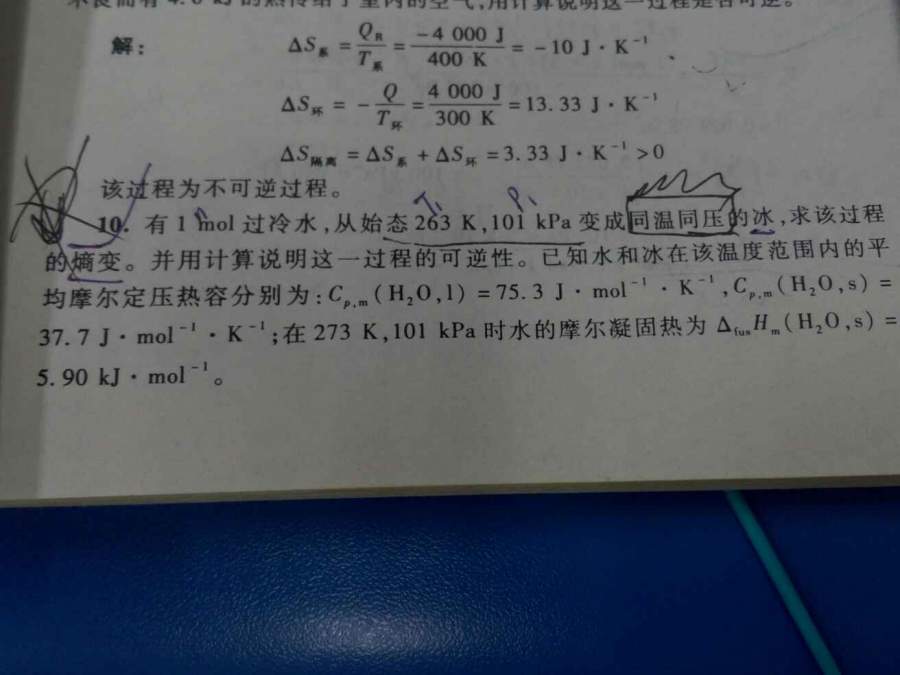 的热传给了室内的空气,用计算说明这一过程是否可逆。
解: ΔS系 = QR/T系 = −4 000 J/400 K = −10 J·K⁻¹
ΔS环 = −Q/T环 = 4 000 J/300 K = 13.33 J·K⁻¹
ΔS隔离 = ΔS系 + ΔS环 = 3.33 J·K⁻¹ >0
该过程为不可逆过程。
10. 有 1 mol 过冷水,从始态 263 K,101 kPa 变成同温同压的冰,求该过程
的熵变。并用计算说明这一过程的可逆性。已知水和冰在该温度范围内的平
均摩尔定压热容分别为:Cp,m(H₂O,l) = 75.3 J·mol⁻¹·K⁻¹,Cp,m(H₂O,s) =
37.7 J·mol⁻¹·K⁻¹;在 273 K,101 kPa 时水的摩尔凝固热为 ΔfusHm(H₂O,s) =
5.90 kJ·mol⁻¹。